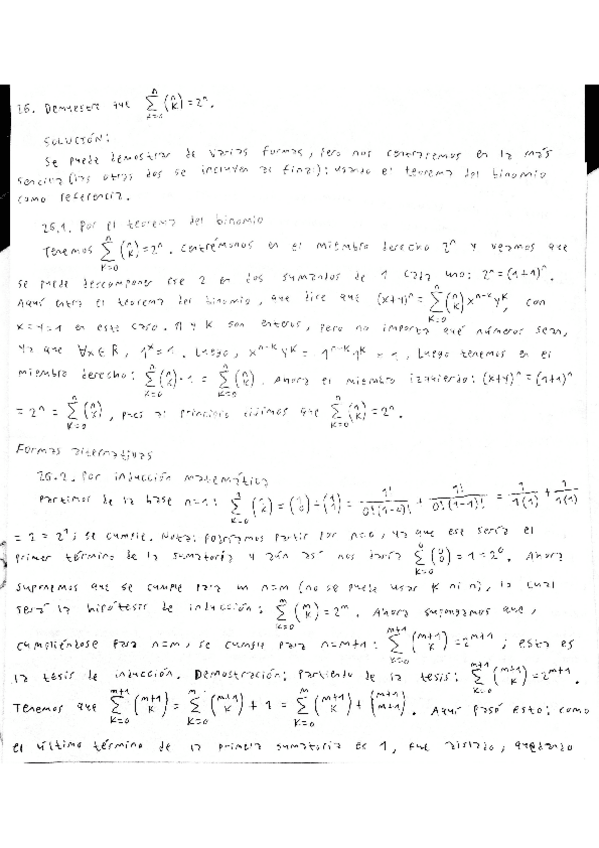 26. Demuestra que \sum_{k=0}^{n} \binom{n}{k} = 2^n.
SOLUCIÓN:
Se puede demostrar de varias formas, pero nos centraremos en la más
sencilla (las otras dos se incluyen al final): usando el teorema del binomio
como referencia.
26.1. Por el teorema del binomio
Tenemos \sum_{k=0}^{n} \binom{n}{k} = 2^n. Centrémonos en el miembro derecho 2^n y veamos que
se puede descomponer ese 2 en dos sumandos de 1 cada uno: 2^n = (1+1)^n.
Aquí entra el teorema del binomio, que dice que (x+y)^n = \sum_{k=0}^{n} \binom{n}{k} x^{n-k} y^k, con
x=y=1 en este caso. n y k son enteros, pero no importa qué números sean,
ya que ∀x∈R, 1^x = 1. Luego, x^{n-k} y^k = 1^{n-k} 1^k = 1, luego tenemos en el
miembro derecho: \sum_{k=0}^{n} \binom{n}{k} · 1 = \sum_{k=0}^{n} \binom{n}{k}. Ahora el miembro izquierdo: (x+y)^n = (1+1)^n
= 2^n = \sum_{k=0}^{n} \binom{n}{k}, pues al principio dijimos que \sum_{k=0}^{n} \binom{n}{k} = 2^n.
Formas alternativas
26.2. Por inducción matemática
Partimos de la base n=1: \sum_{k=0}^{1} \binom{1}{k} = \binom{1}{0} + \binom{1}{1} = \frac{1!}{0!(1-0)!} + \frac{1!}{1!(1-1)!} = \frac{1}{1(1)} + \frac{1}{1(1)}
= 2 = 2^1; se cumple. Nota: podríamos partir por n=0, ya que ese sería el
primer término de la sumatoria y aún así nos daría \sum_{k=0}^{0} \binom{0}{0} = 1 = 2^0. Ahora
suponemos que se cumple para un n=m (no se puede usar k ni n), la cual
será la hipótesis de inducción: \sum_{k=0}^{m} \binom{m}{k} = 2^m. Ahora supongamos que,
cumpliéndose para n=m, se cumple para n=m+1: \sum_{k=0}^{m+1} \binom{m+1}{k} = 2^{m+1}; esta es
la tesis de inducción. Demostración: Partiendo de la tesis: \sum_{k=0}^{m+1} \binom{m+1}{k} = 2^{m+1}.
Tenemos que \sum_{k=0}^{m+1} \binom{m+1}{k} = \sum_{k=0}^{m} \binom{m+1}{k} + 1 = \sum_{k=0}^{m} \binom{m+1}{k} + \binom{m+1}{m+1}. Aquí pasó esto: como
el último término de la primera sumatoria es 1, fue aislado, quedando